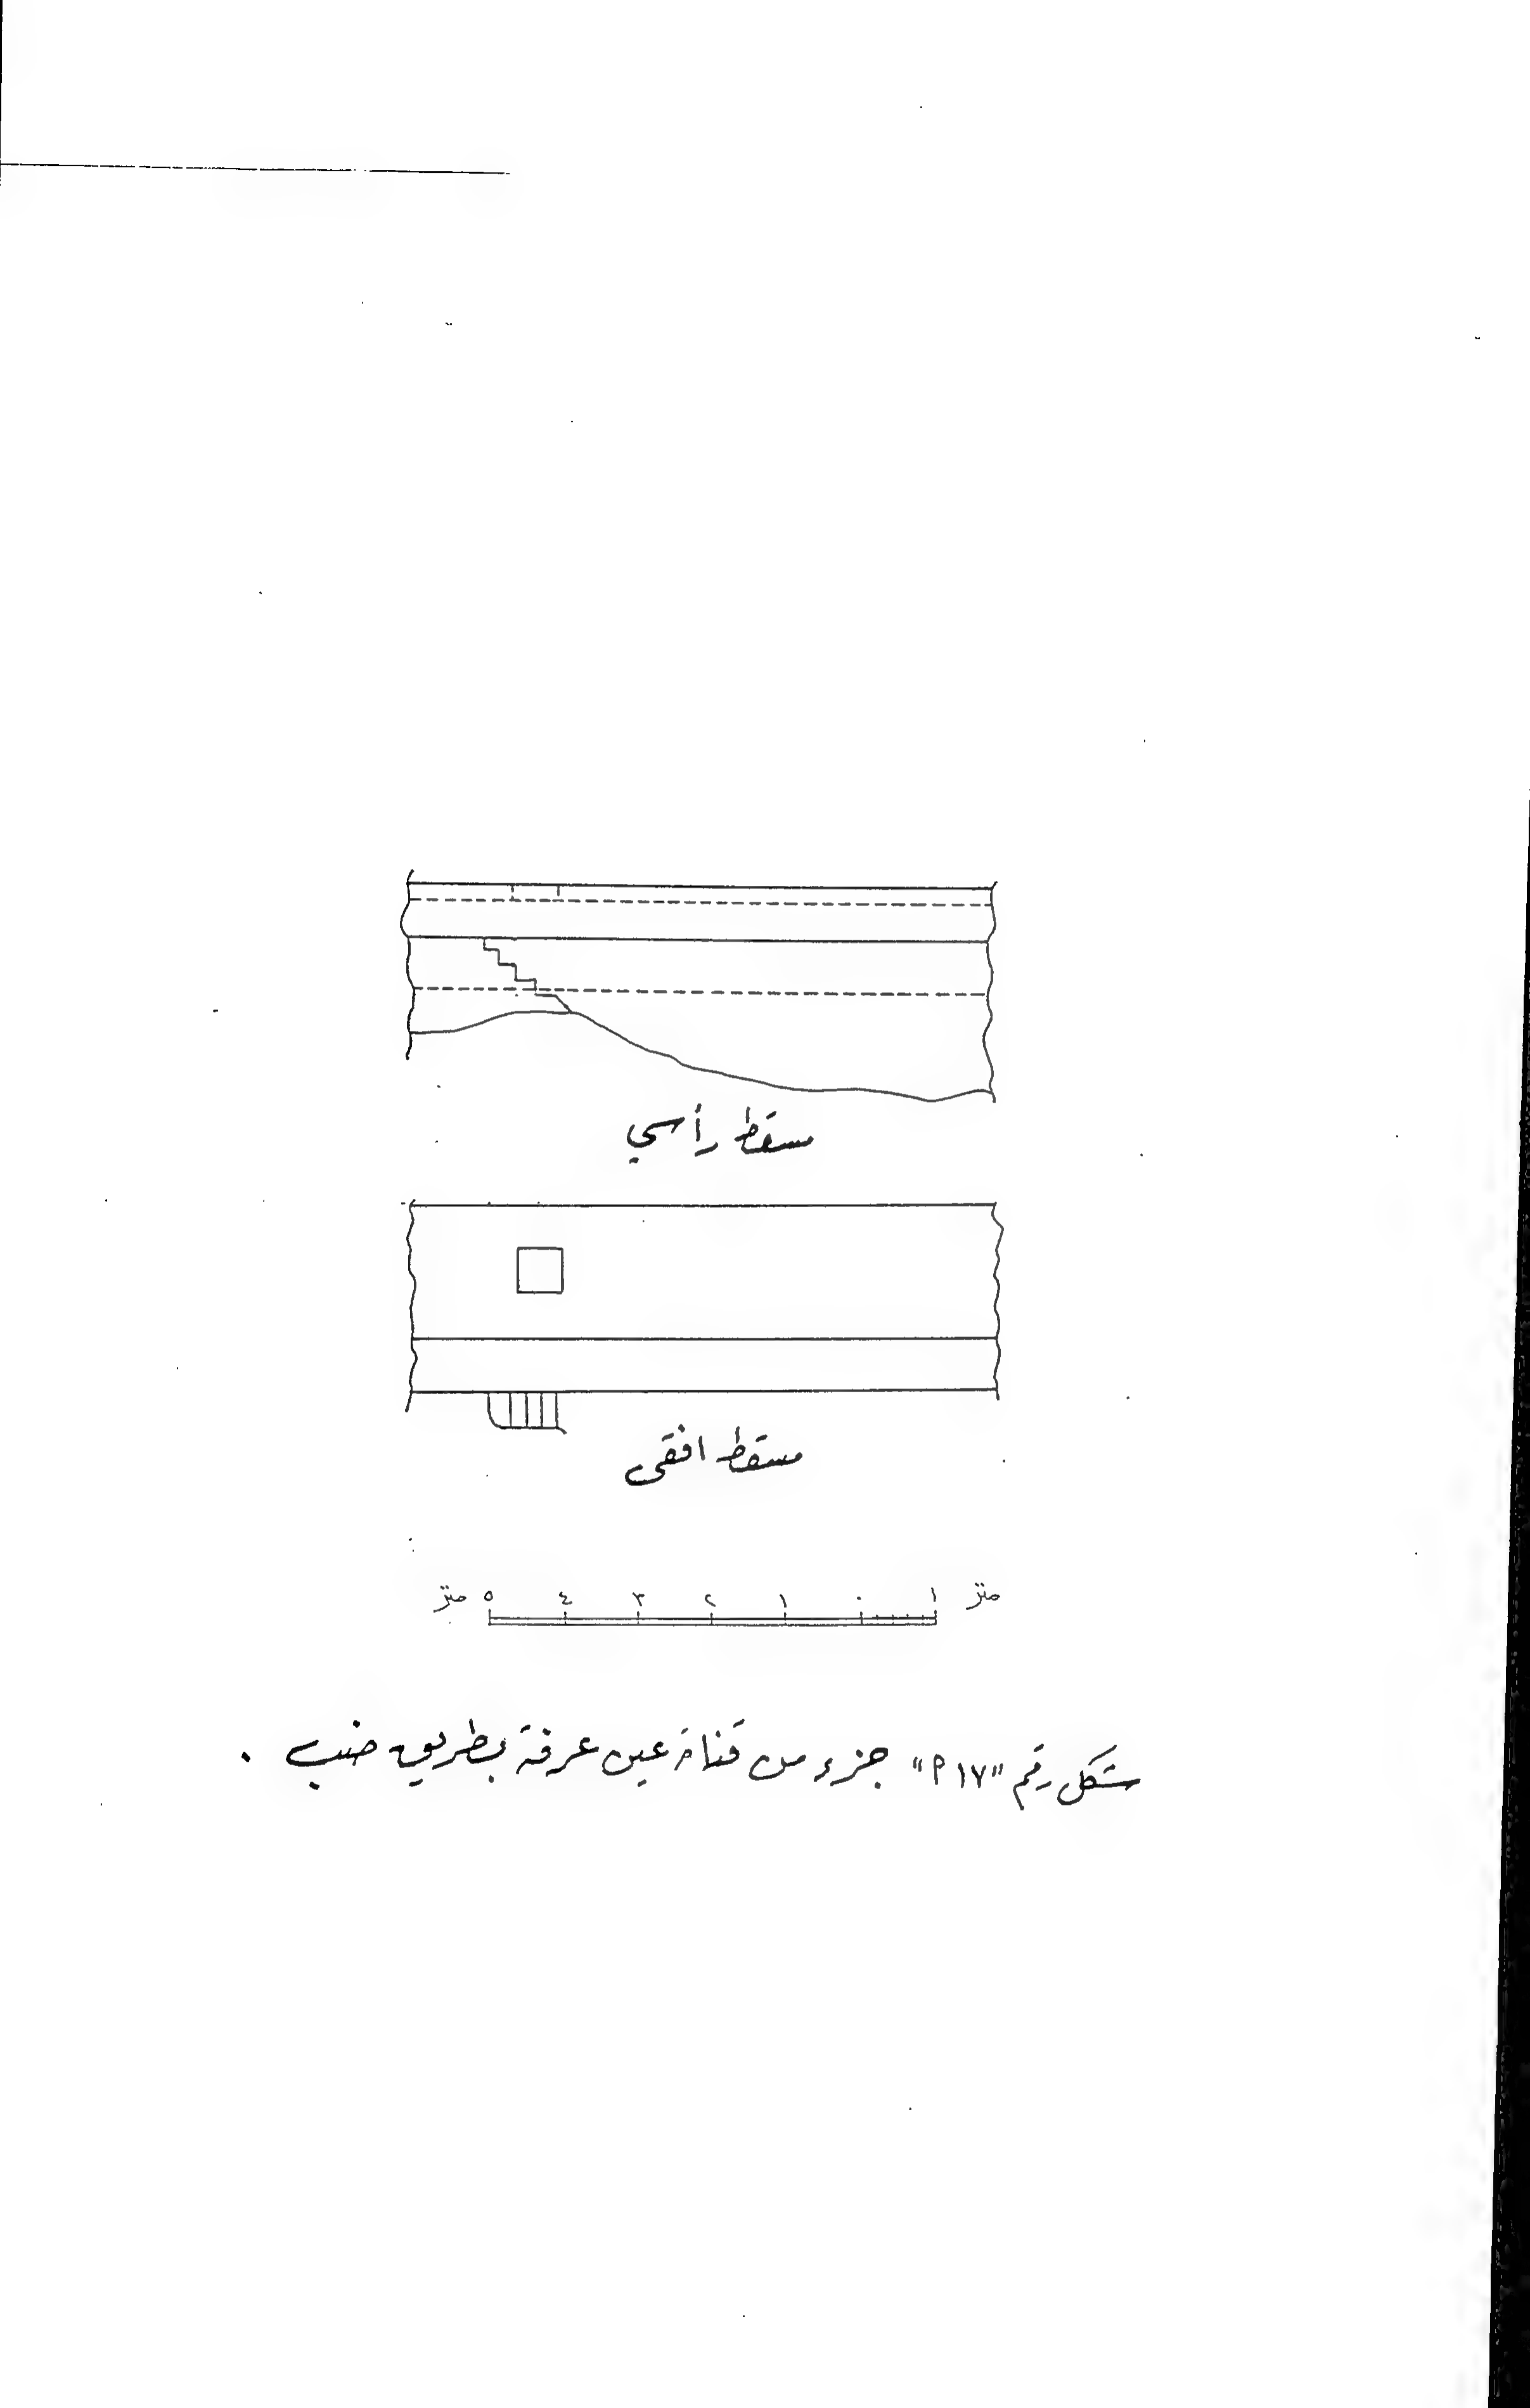 مسقط رأسي
مسقط افقى
متر ١ ٠ ١ ٢ ٣ ٤ ٥ متر
شكل رقم "١٧م" جزء من قناة عين عرفة بطريق ضب .